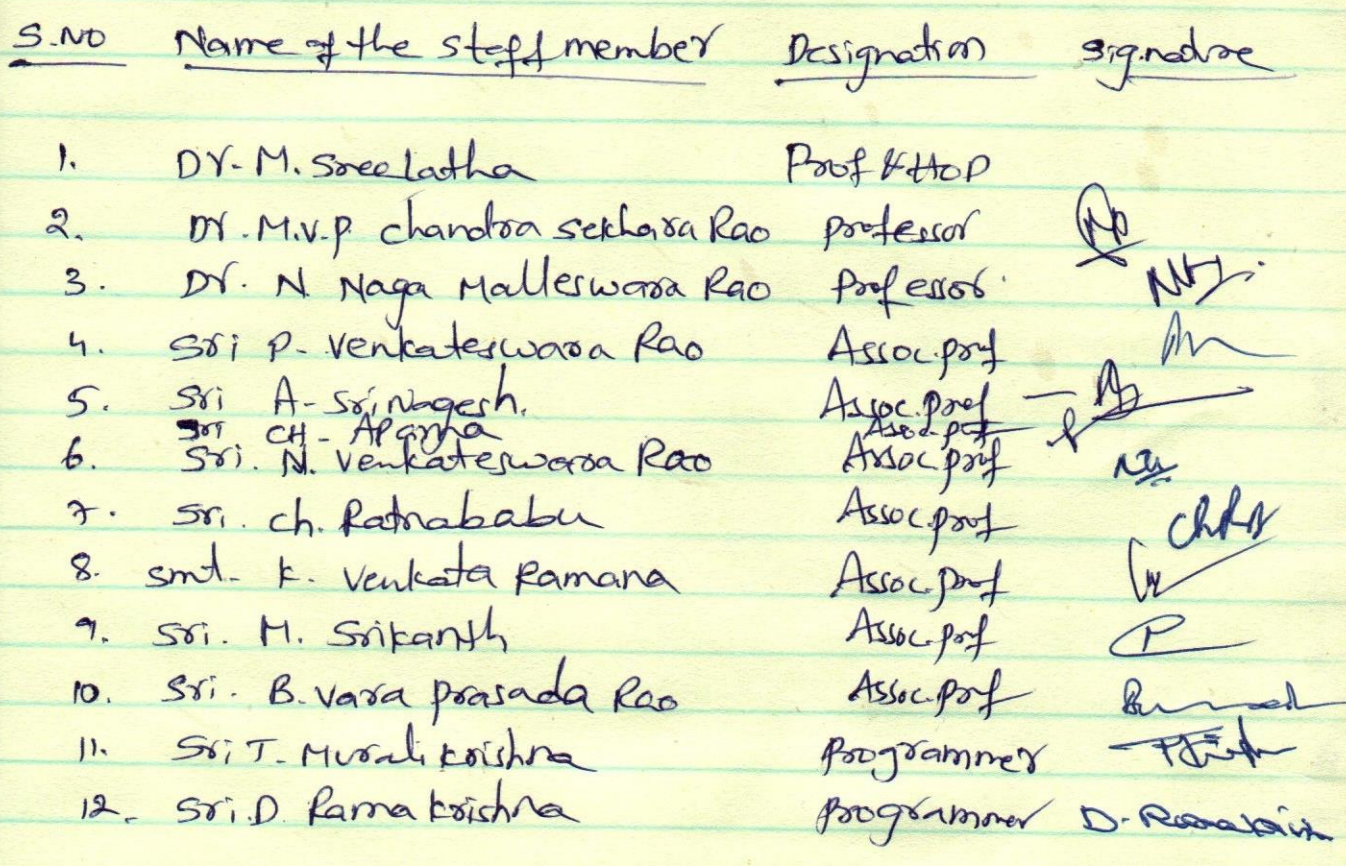 S.NO Name of the Staff member Designation Signature
1. Dr. M. Sreelatha Prof & HOD
2. Dr. M.V.P. chandra sekhara Rao professor
3. Dr. N. Naga Malleswara Rao Professor
4. Sri P. Venkateswara Rao Assoc. prof
5. Sri A. Sri Nagesh. Assoc. prof
Sri CH. Aparna Assoc. prof
6. Sri. N. Venkateswara Rao Assoc. prof
7. Sri. ch. Ratnababu Assoc. prof
8. smt. K. Venkata Ramana Assoc. prof
9. Sri. M. Srikanth Assoc. prof
10. Sri. B. Vara prasada Rao Assoc. prof
11. Sri T. Murali krishna programmer
12. Sri. D. Rama krishna programmer D. Ramakrishna